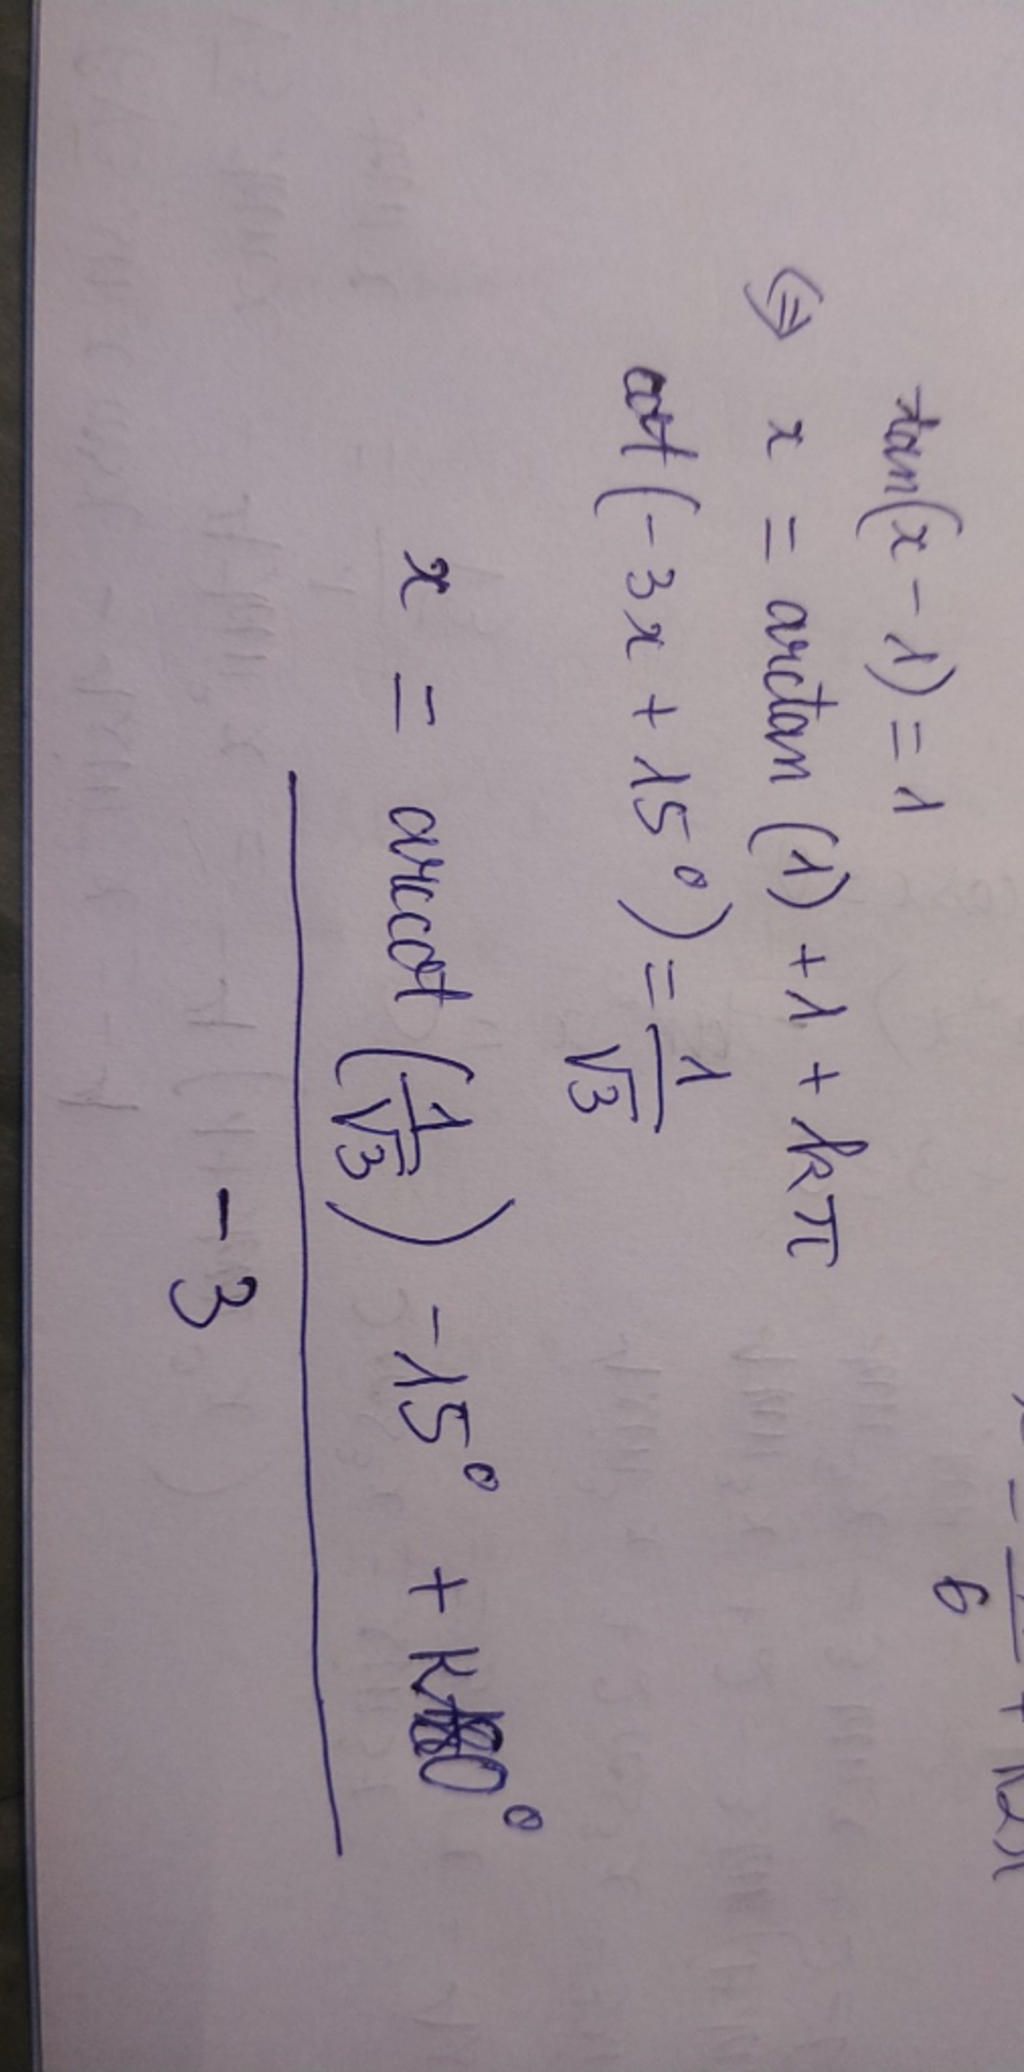 tan(x - 1) = 1
⇔ x = arctan (1) + 1 + kπ
cot (-3x + 15°) = 1/√3
x = arccot (1/√3) - 15° + k180°
- 3
6